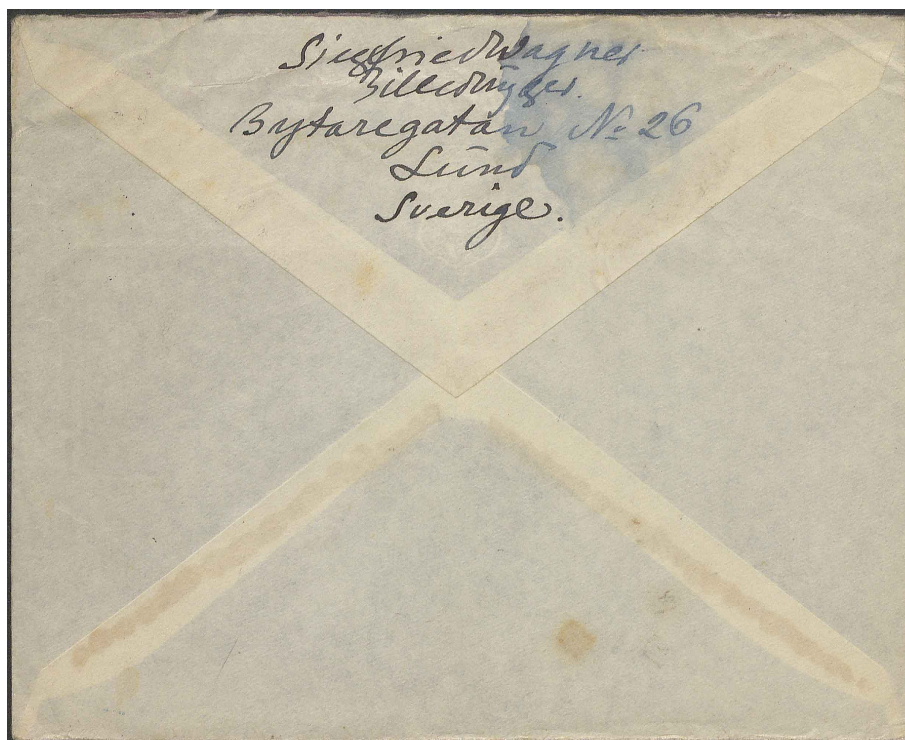 Siegfried Wagner
Billedhugger.
Bytaregatan No 26
Lund
Sverige.